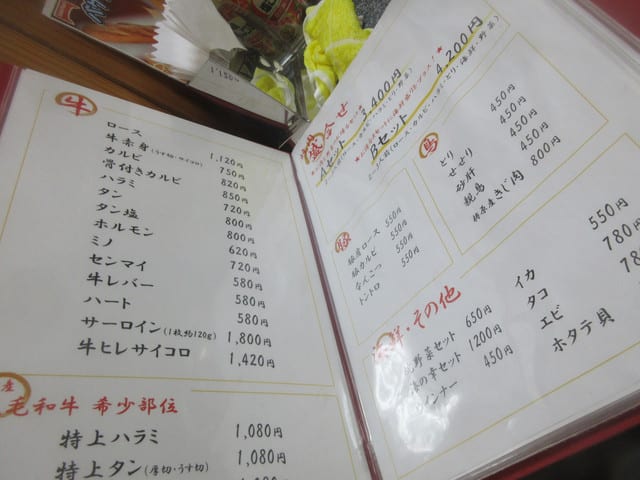 牛
ロース 1,120円
牛赤身(うす切・サイコロ) 750円
カルビ 820円
骨付きカルビ 850円
ハラミ 720円
タン 800円
タン塩 800円
ホルモン 620円
ミノ 720円
センマイ 580円
牛レバー 580円
ハート 580円
サーロイン(1枚約120g) 1,800円
牛ヒレサイコロ 1,420円
産
毛和牛 希少部位
特上ハラミ 1,080円
特上タン(厚切・うす切) 1,080円
1,080円
盛合せ
Aセット 3,400円
Bセット 4,200円
豚
豚肩ロース 550円
豚カルビ 550円
なんこつ 550円
トントロ 550円
鳥
とり 450円
せせり 450円
砂肝 450円
親鳥 450円
きじ肉 800円
鮮・その他
野菜セット 650円
の幸セット 1200円
インナー 450円
イカ 550円
タコ 780円
エビ 780
ホタテ貝